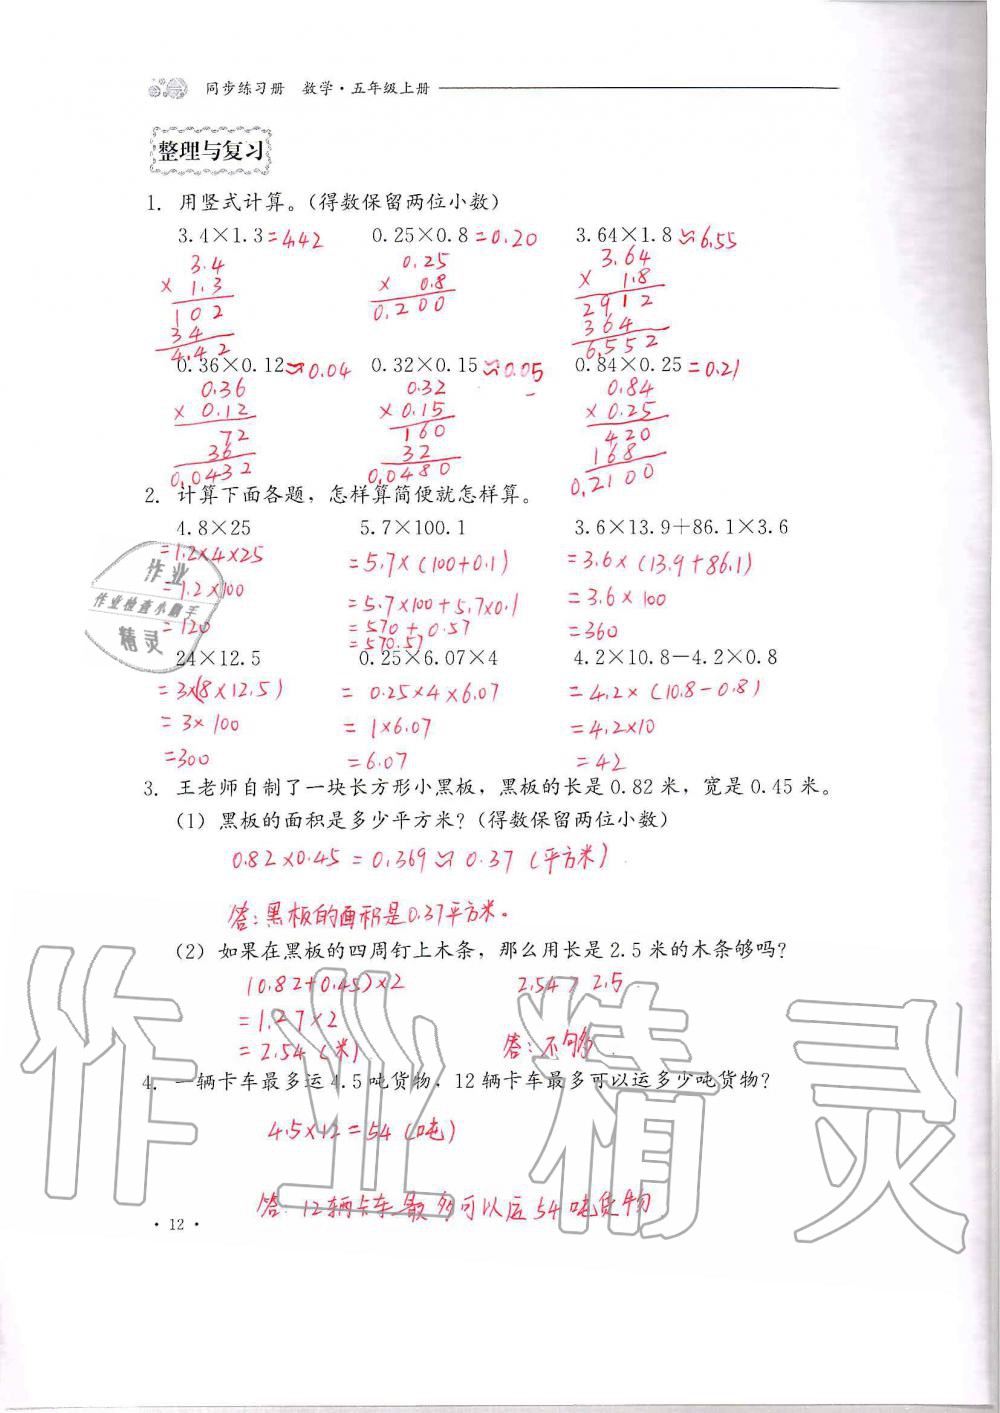 同步练习册 数学·五年级上册
整理与复习
1. 用竖式计算。(得数保留两位小数)
3.4×1.3=4.42 0.25×0.8=0.20 3.64×1.8≈6.55
3.4 0.25 3.64
× 1.3 × 0.8 × 1.8
102 0.200 2912
34 364
4.42 6.552
0.36×0.12≈0.04 0.32×0.15≈0.05 0.84×0.25=0.21
0.36 0.32 0.84
× 0.12 × 0.15 × 0.25
72 160 420
36 32 168
0.0432 0.0480 0.2100
2. 计算下面各题，怎样算简便就怎样算。
4.8×25 5.7×100.1 3.6×13.9+86.1×3.6
=1.2×4×25 =5.7×(100+0.1) =3.6×(13.9+86.1)
=1.2×100 =5.7×100+5.7×0.1 =3.6×100
=120 =570+0.57 =360
=570.57
24×12.5 0.25×6.07×4 4.2×10.8-4.2×0.8
=3×(8×12.5) =0.25×4×6.07 =4.2×(10.8-0.8)
=3×100 =1×6.07 =4.2×10
=300 =6.07 =42
3. 王老师自制了一块长方形小黑板，黑板的长是0.82米，宽是0.45米。
(1) 黑板的面积是多少平方米？(得数保留两位小数)
0.82×0.45=0.369≈0.37(平方米)
答:黑板的面积是0.37平方米。
(2) 如果在黑板的四周钉上木条，那么用长是2.5米的木条够吗？
(0.82+0.45)×2 2.54>2.5
=1.27×2
=2.54(米) 答:不够
4. 一辆卡车最多运4.5吨货物，12辆卡车最多可以运多少吨货物？
4.5×12=54(吨)
答:12辆卡车最多可以运54吨货物
·12·
作业
作业检查小助手
精灵
作业精灵